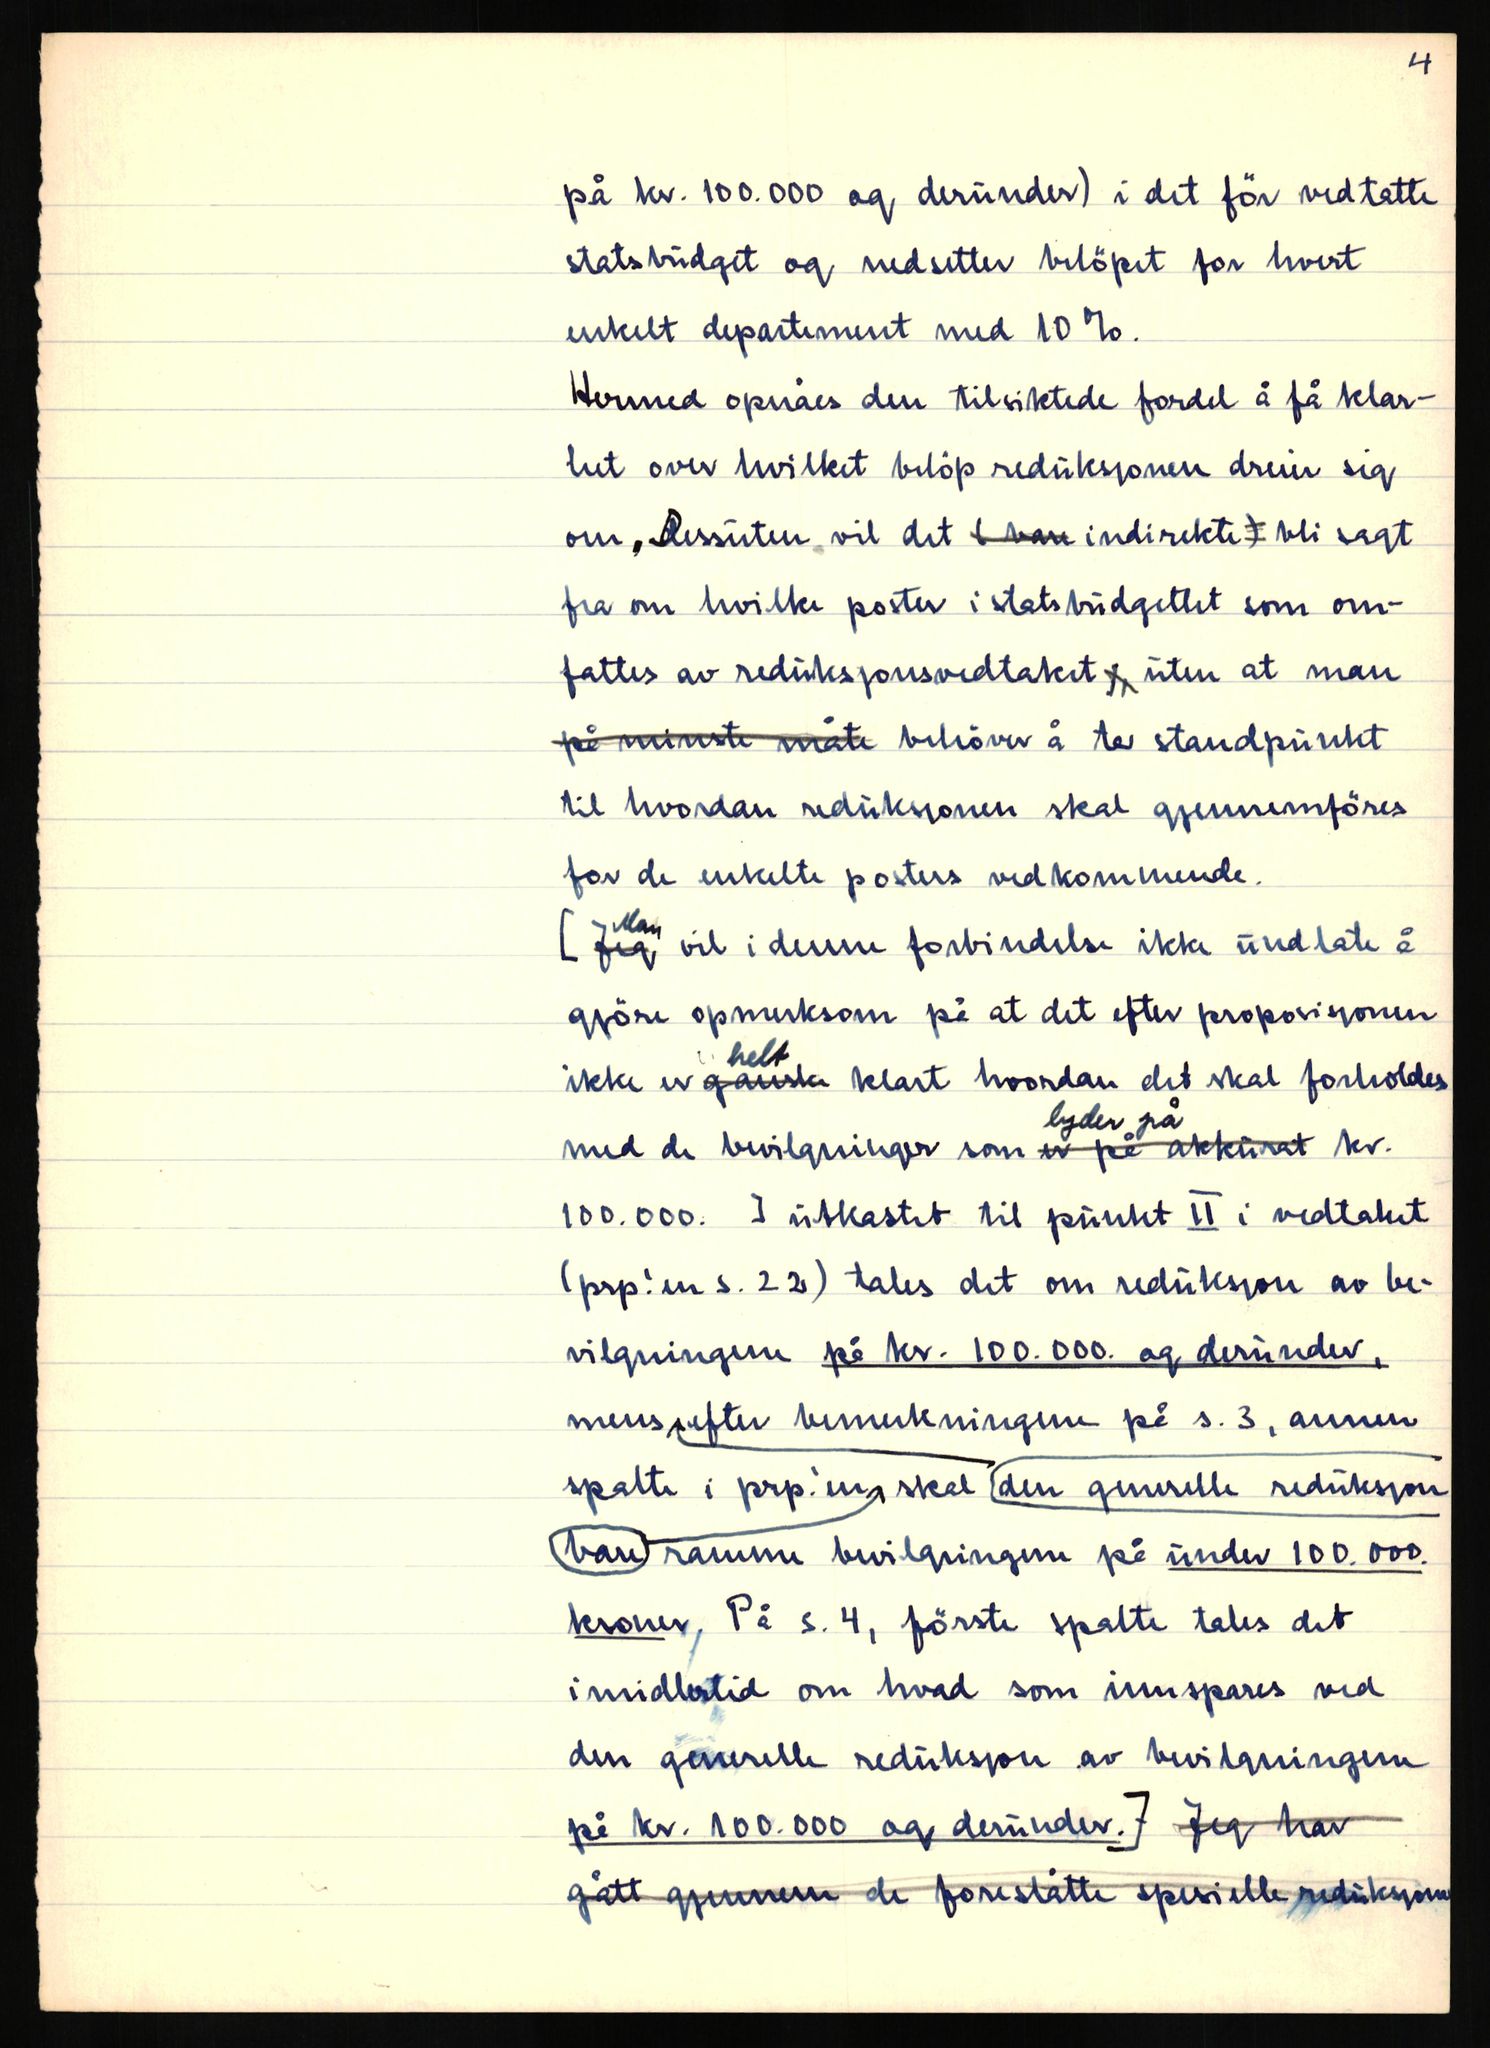 4
på kr. 100.000 og derunder) i det för vedtatte
statsbudget og nedsetter belöpet for hvert
enkelt departement med 10%.
Hermed opnåes den tilsiktede fordel å få klar-
het over hvilket belöp reduksjonen dreier sig
om. Dessuten vil det (bare indirekte) bli sagt
fra om hvilke poster i statsbudgettet som om-
fattes av reduksjonsvedtaket uten at man
på minste måte behöver å ta standpunkt
til hvordan reduksjonen skal gjennemföres
for de enkelte posters vedkommende.
Man
[Jeg vil i denne forbindelse ikke undlate å
gjöre opmerksom på at det efter proposisjonen
helt
ikke er ganske klart hvordan det skal forholdes
lyder på
med de bevilgninger som er på akkurat kr.
100.000. I utkastet til punkt II i vedtaket
(prp!en s. 22) tales det om reduksjon av be-
vilgningene på kr. 100.000. og derunder,
mens efter bemerkningene på s. 3, annen
spalte i prp!en skal den generelle reduksjon
bare ramme bevilgningene på under 100.000.
kroner. På s. 4, förste spalte tales det
imidlertid om hvad som innspares ved
den generelle reduksjon av bevilgningene
på kr. 100.000 og derunder.] Jeg har
gått gjennem de foreslåtte spesielle reduksjoner